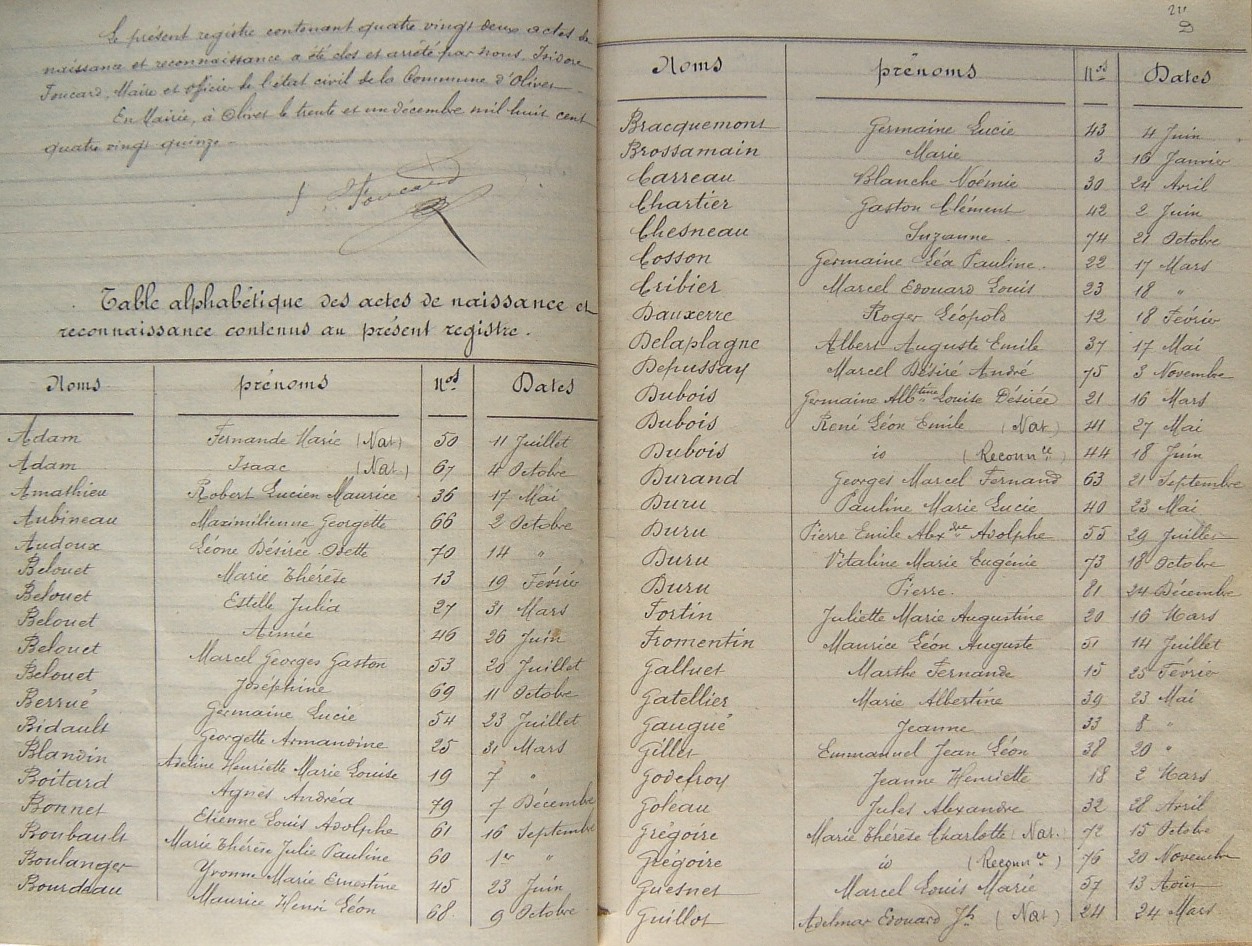 Le présent registre contenant quatre vingt deux actes de
naissance et reconnaissance a été clos et arrêté par nous, Isidore
Foucard, Maire et officier de l'état civil de la Commune d'Olivet.
En Mairie, à Olivet le trente et un décembre mil huit cent
quatre vingt quinze.
I. Foucard
Table alphabétique des actes de naissance et
reconnaissance contenus au présent registre.
Noms prénoms Nos Dates
Adam Fernande Marie (Nat) 50 11 Juillet
Adam Isaac (Nat.) 67 4 Octobre
Amathieu Robert Lucien Maurice 36 17 Mai
Aubineau Maximilienne Georgette 66 2 Octobre
Audoux Léone Désirée Odette 70 14 "
Belouet Marie Thérèse 13 19 Février
Belouet Estelle Julia 27 31 Mars
Belouet Aimée 46 26 Juin
Belouet Marcel Georges Gaston 53 20 Juillet
Belouet Joséphine 69 11 Octobre
Berrué Germaine Lucie 54 23 Juillet
Bidault Georgette Armandine 25 31 Mars
Blandin Adeline Henriette Marie Louise 19 7 "
Boitard Agnès Andréa 79 7 Décembre
Bonnet Etienne Louis Adolphe 61 16 Septembre
Boubault Marie Thérèse Julie Pauline 60 1er "
Boulanger Yvonne Marie Ernestine 45 23 Juin
Bourdeau Maurice Henri Léon 68 9 Octobre
Noms prénoms Nos Dates
Bracquemont Germaine Lucie 43 4 Juin
Brossamain Marie 3 16 Janvier
Carreau Blanche Noémie 30 24 Avril
Chartier Gaston Clément 42 2 Juin
Chesneau Suzanne 74 21 Octobre
Cosson Germaine Léa Pauline. 22 17 Mars
Cribier Marcel Edouard Louis 23 18 "
Dauxerre Roger Léopold 12 18 Février
Delaplagne Albert Auguste Emile 37 17 Mai
Depussay Marcel Désiré André 75 3 Novembre
Dubois Germaine Albtine Louise Désirée 21 16 Mars
Dubois René Léon Emile (Nat) 41 27 Mai
Dubois id (Reconnce) 44 18 Juin
Durand Georges Marcel Fernand 63 21 Septembre
Duru Pauline Marie Lucie 40 23 Mai
Duru Pierre Emile Alexdre Adolphe 55 29 Juillet
Duru Vitaline Marie Eugénie 73 18 Octobre
Duru Pierre. 81 24 Décembre
Fortin Juliette Marie Augustine 20 16 Mars
Fromentin Maurice Léon Auguste 51 14 Juillet
Galluet Marthe Fernande 15 25 Février
Gatellier Marie Albertine 39 23 Mai
Gaugué Jeanne 33 8 "
Gillet Emmanuel Jean Léon 38 20 "
Godefroy Jeanne Henriette 18 2 Mars
Goléau Jules Alexandre 32 28 Avril
Grégoire Marie Thérèse Charlotte (Nat.) 72 15 Octobre
Grégoire id (Reconnce) 76 20 Novembre
Guesnet Marcel Louis Marie 57 13 Août
Guillot Adelmar Edouard Jh (Nat) 24 24 Mars